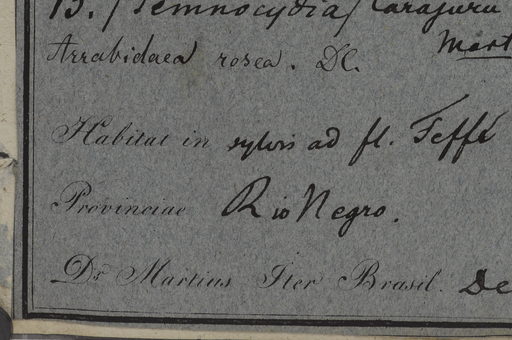 B. (Temnocydia) Carajuru
Mart
Arrabidaea rosea. DC.
Habitat in sylvis ad fl. Teffé
Provinciae Rio Negro.
Dr. Martius Iter Brasil. De